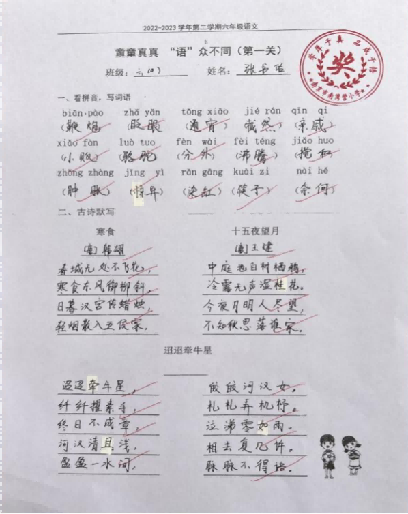 2022-2023学年第二学期六年级语文
章章真真 “语”众不同（第一关）
班级： 姓名：
一、看拼音，写词语
biān pào zhà yān tōng xiāo jié rán qīn qi
(鞭炮) (通宵) (截然) (亲戚)
xiǎo fàn luò tuo fèn wài fèi téng jiǎo huo
(小贩) (骆驼) (分外) (沸腾) (搅和)
zhǒng zhàng jīng yì rǎn gāng kuài zi nài hé
(肿胀) (染缸) (筷子) (奈何)
二、古诗默写
寒食 十五夜望月
[唐]韩翃 [唐]王建
春城无处不飞花， 中庭地白树栖鸦，
寒食东风御柳斜。 冷露无声湿桂花。
日暮汉宫传蜡烛， 今夜月明人尽望，
轻烟散入五侯家。 不知秋思落谁家。
迢迢牵牛星
迢迢牵牛星， 皎皎河汉女。
纤纤擢素手， 札札弄机杼。
终日不成章， 泣涕零如雨。
河汉清且浅， 相去复几许。
盈盈一水间， 脉脉不得语。
奖